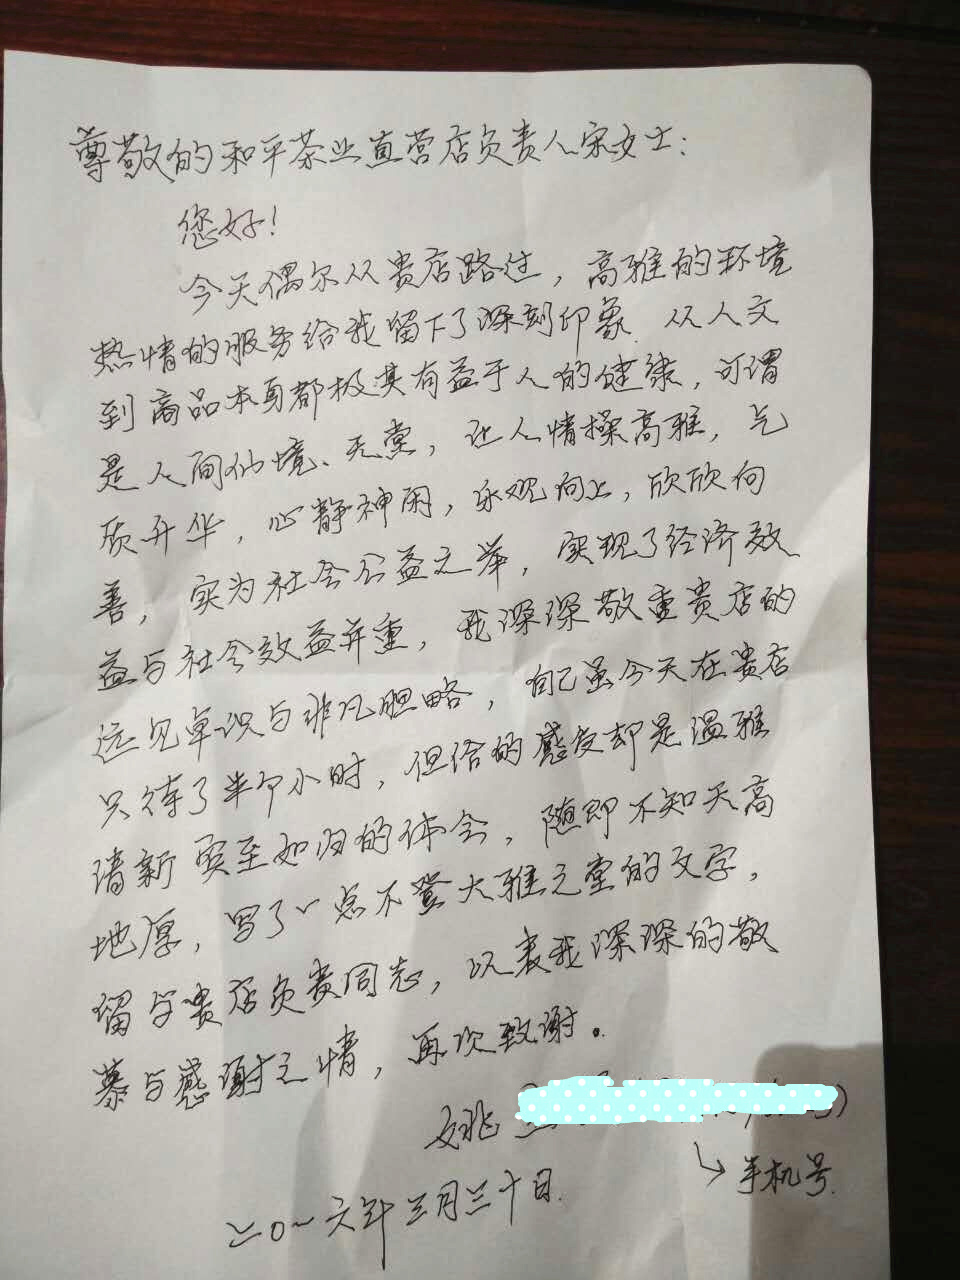 尊敬的和平茶业直营店负责人宋女士：
您好！
今天偶尔从贵店路过，高雅的环境
热情的服务给我留下了深刻印象 从人文
到商品本身都极其有益于人的健康，可谓
是人间仙境、天堂，让人情操高雅，气
质升华，心静神闲，乐观向上，欣欣向
善，实为社会公益之举，实现了经济效
益与社会效益并重，我深深敬重贵店的
远见卓识与非凡胆略，自己虽今天在贵店
只待了半个小时，但给的感受却是温雅
清新 宾至如归的体会，随即不知天高
地厚，写了一点不登大雅之堂的文字，
留与贵店负责同志，以表我深深的敬
慕与感谢之情，再次致谢。
姚
手机号
二〇一六年三月三十日